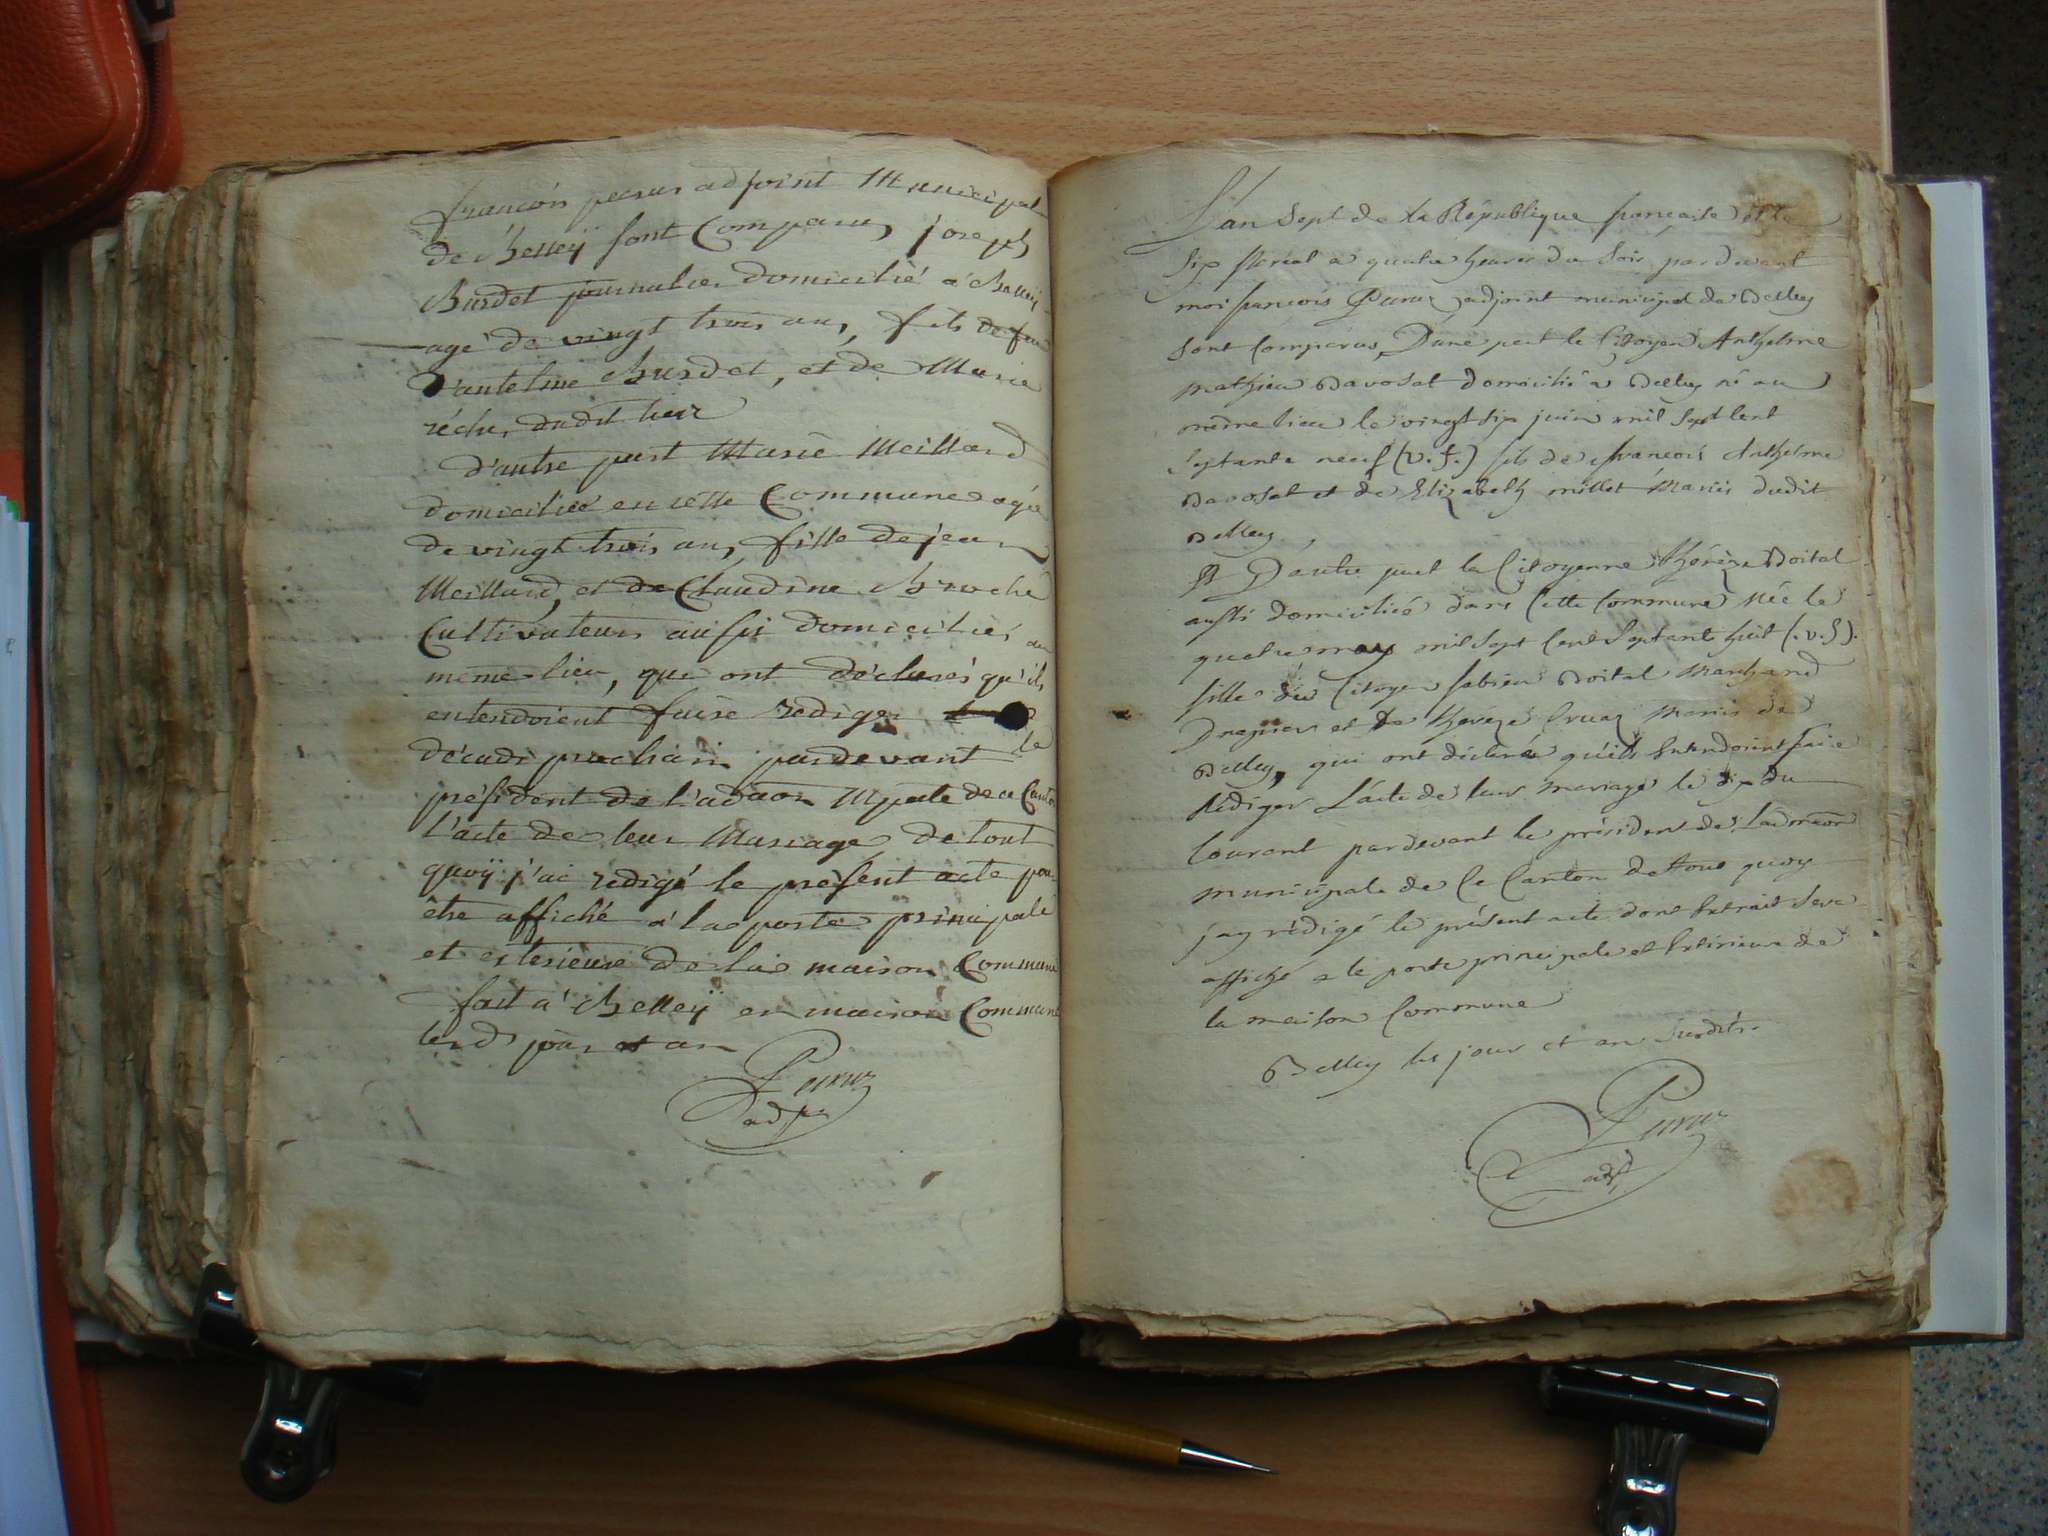 françois peruz adjoint Municipal
de Belleÿ sont Comparus, joseph
Burdet journalier domicilié a Belleÿ
agé de vingt trois ans, fils de feu
d'antelme Burdet, et de Marie
réche, dudit lieu
d'autre part Marie Meilland
domiciliée en cette Commune agée
de vingt trois ans, fille de jean
Meilland, et de Claudine Broche
Cultivateurs aussi domiciliés au
même lieu, qui ont déclarés qu'ils
entendoient faire rediger
décadi prochain pardevant le
président de l'adaon Mpale de ce Canton
l'acte de leur Mariage de tout
quoÿ j'ai redigé le présent acte pour
être affiché a la porte principale
et exterieure de la maison Commune
fait a Belleÿ en maison Commune
lesd jour et an
Peruz
adjt
L'an Sept de la République française et le
six floréal a quatre heures du Soir pardevant
moi francois Peruz adjoint municipal de Belley
sont Comparus, D'une part le Citoyen Anthelme
mathieu Davosat domicilié a Belley né au
même lieu le vingt six juin mil sept Cent
Septante neuf (v. s.) fils de francois Anthelme
Davosat et de Elizabeth millet Mariés dudit
Belley.
Et D'autre part la Citoyenne Thérèze Boital
aussi domiciliée dans Cette Commune Née le
quatre may mil sept Cent Septante huit (. v. s).
fille du Citoyen fabien Boital Marchand
Drapier et de Thereze Cruaz Mariés de
Belley, qui ont déclaré qu'ils Entendoient faire
Rédiger L'acte de leur mariage le dix du
Courant pardevant le président de Ladmaon
municipale de Ce Canton de tout quoy
jay rédigé le présent acte dont Extrait Sera
affiché a la porte principale et Extérieure de
la maison Commune
Belley les jour et an Susdits.
Peruz
adjt